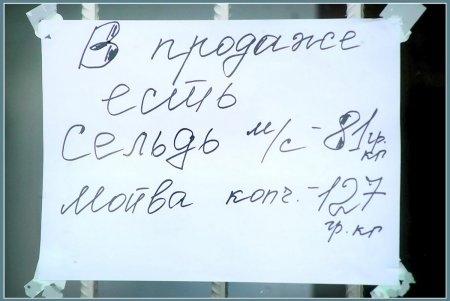 В продаже
есть
сельдь м/с - 81 гр.
кг
мойва копч. - 127
гр. кг